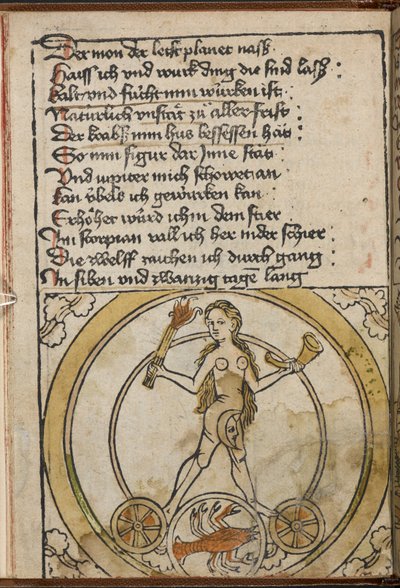 Der mon der letst planet nass
Haiss ich vnd würck ding die sind lass :
kalt vnd fücht min würken ist
Naturlich vnstät zů aller frist :
Der krebß min hus besessen hat :
So min figur dar Inne stat :
Vnd iupiter mich schowet an
kan v̈bels ich gewürken kan :
Erhöhet würd ich in dem stier :
Im storpian vall ich her nider schier :
Die zwelff zaichen ich durch gang :
In siben vnd zwanzig tagen lang